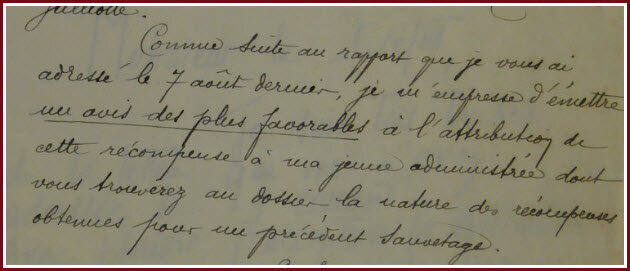 Comme suite au rapport que je vous ai
adressé le 7 août dernier, je m'empresse d'émettre
un avis des plus favorables à l'attribution de
cette récompense à ma jeune administrée dont
vous trouverez au dossier la nature des récompenses
obtenues pour un précédent sauvetage.